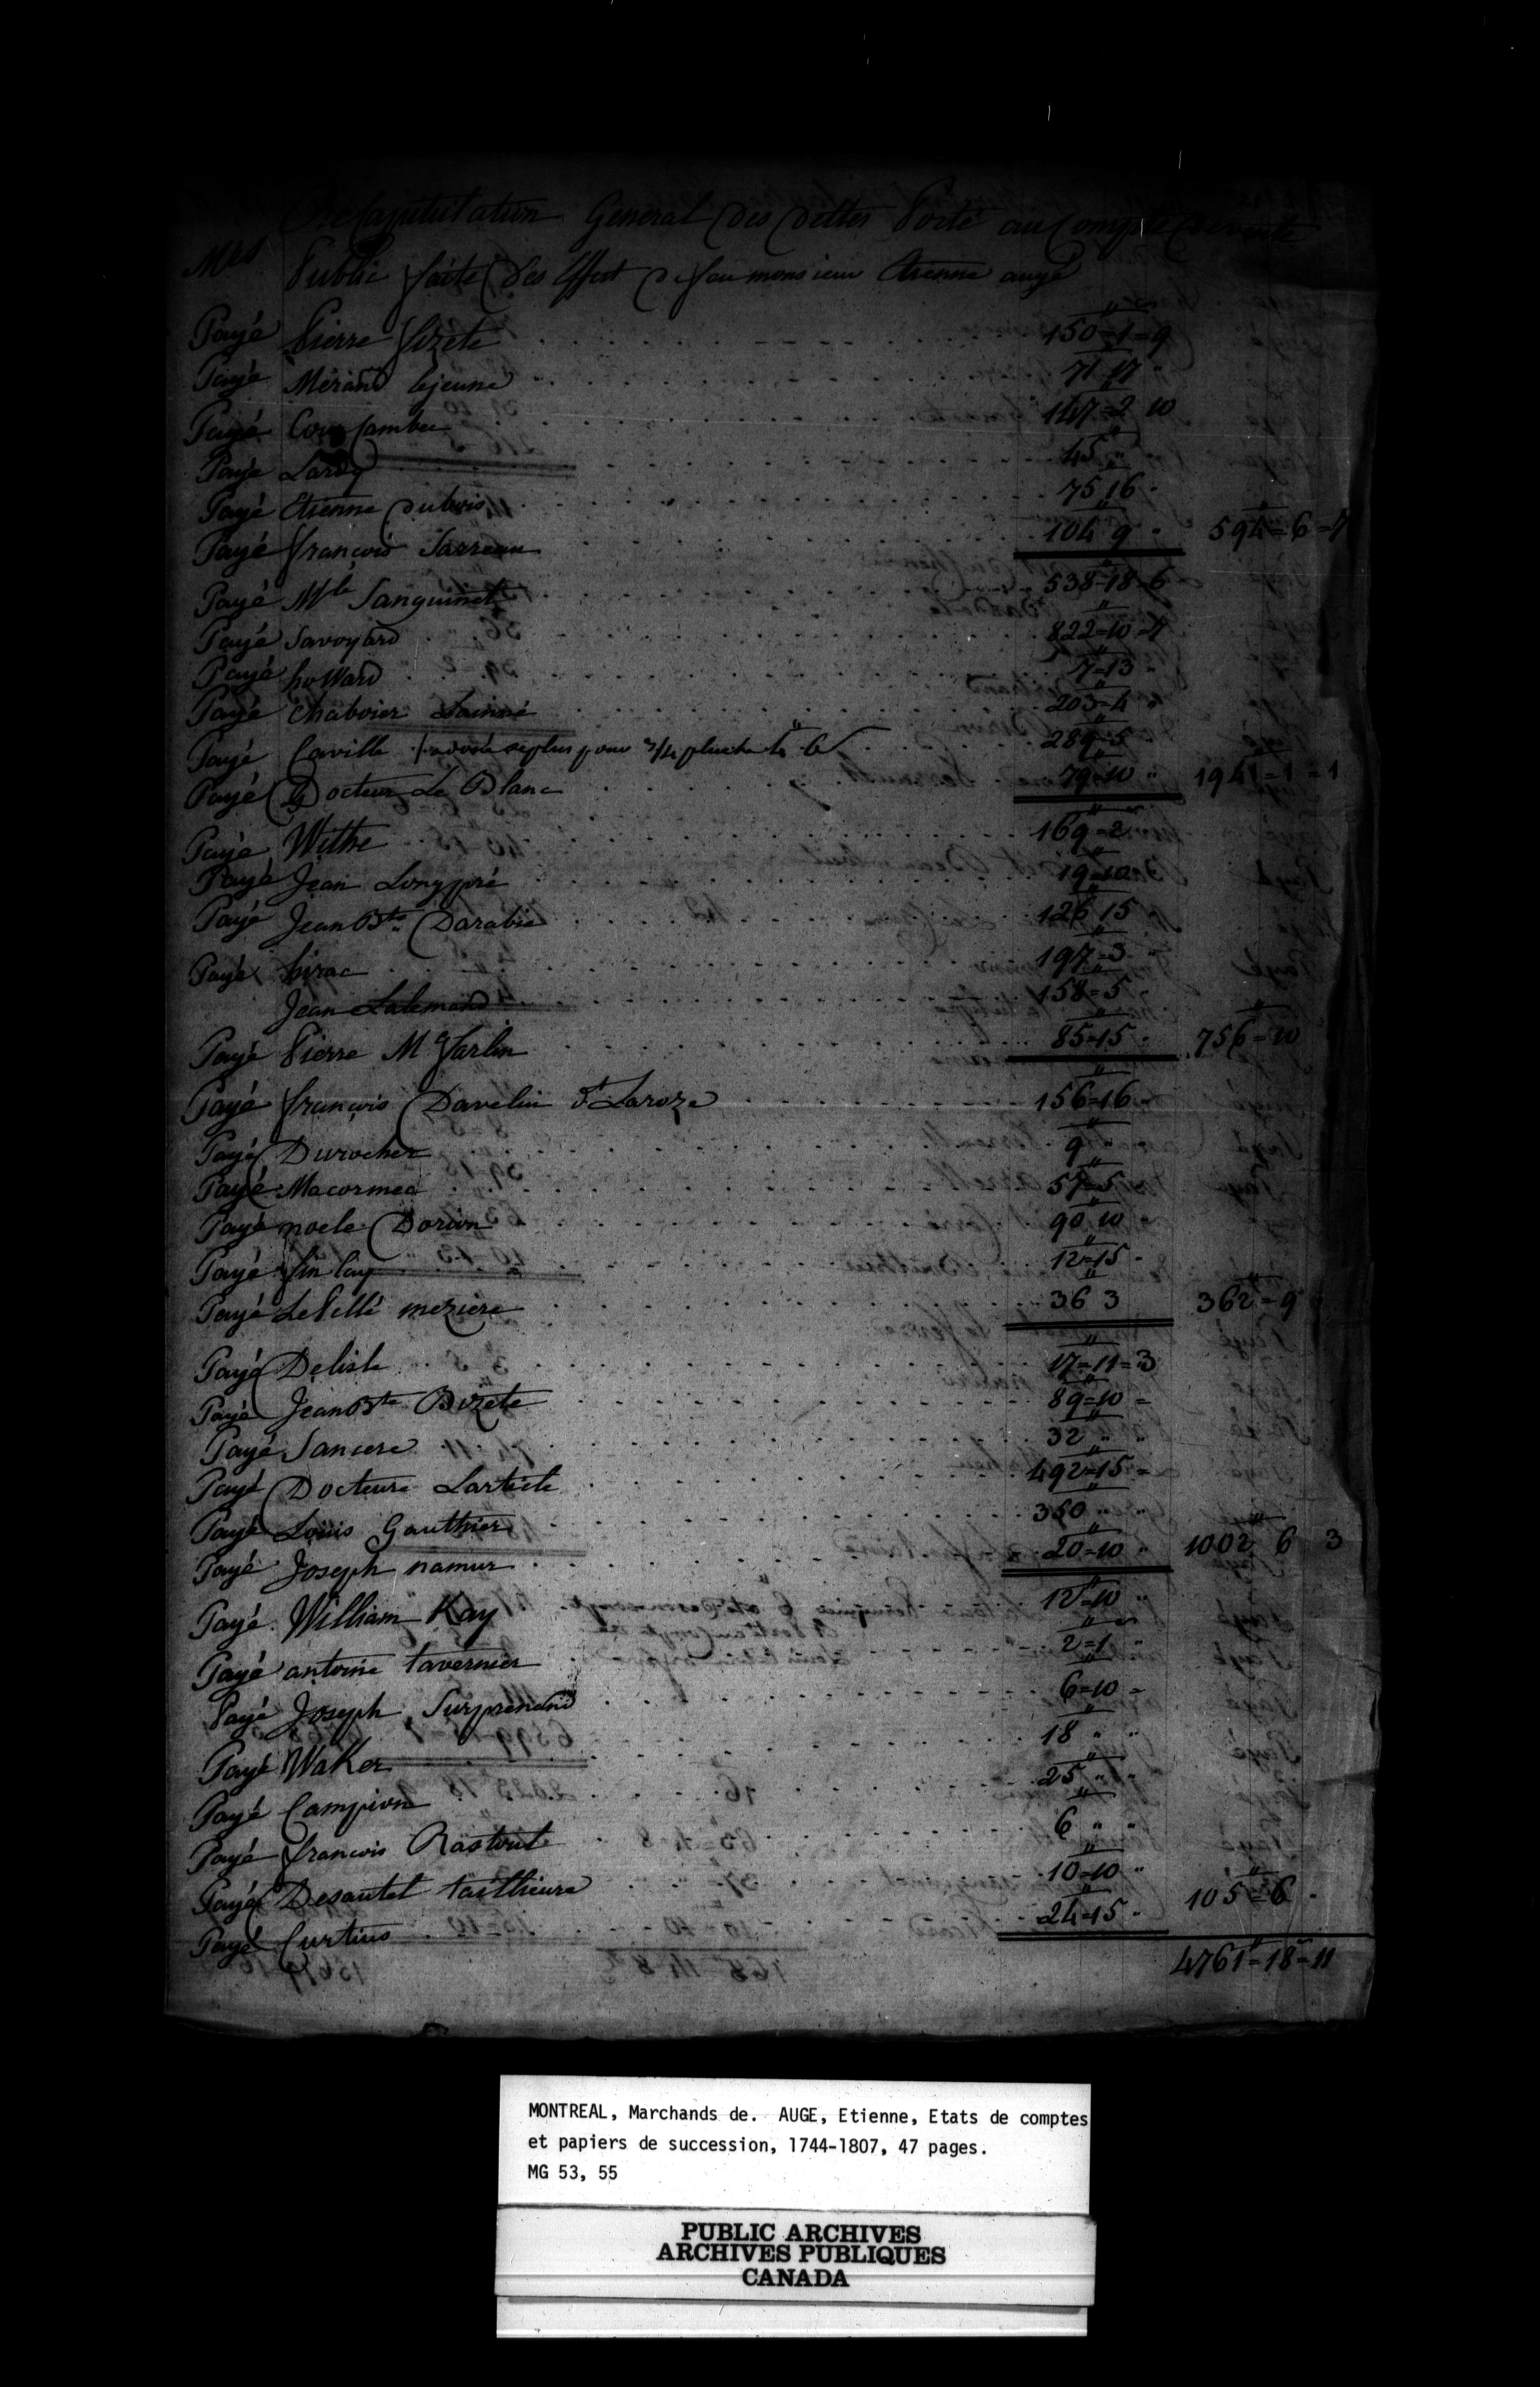 Recapitulation General Des Dettes Porté au Compte De vente
Mrs Public faite Des Effest De feu monsieur Etienne augé
Payé Pierre fizete 150=1=9
Payé Mérand lejeune 71 17
Payé 147=2 10
Payé Lardy 45
Payé Etienne Dubois 75 16
Payé françois Sarreau 104 9 594=6=7
Payé Mle Sanguinet 538=18=6
Payé Savoyard 822=10=7
Payé hoWard 7=13
Payé Chaboier Lainné 203=4
Payé Caville 289=5
Payé Le Docteur Le Blanc 79=10 1941=1=1
Payé Withe 169=2
Payé Jean Longpré 19=10
Payé Jean Bte Darabie 126 15
Payé hirac 197=3
Jean Lalemand 158=5
Payé Pierre Mc farlin 85=15 756=10
Payé françois Davelui dt Laroze 156=16
Payé Durocher 9
Payé Macormec 57=5
Payé noele Dorion 90 10
Payé finlay 12=15
Payé LePellé meziere 36 3 362=9
Payé Delisle 17=11=3
Payé Jean Bte Bizete 89=10
Payé Sancere 32
Payé Docteure Larticle 492=15
Payé Louis Gauthier 350
Payé Joseph namur 20=10 1002 6 3
Payé William Kay 12=10
Payé antoine tavernier 2=1
Payé Joseph Surprenand 6=10
Payé WaKer 18
Payé Campion 25
Payé françois Rastoule 6
Payé Desautel taillieure 10=10
Payé Curtius 24=15 105=6
4761=18=11
MONTREAL, Marchands de. AUGE, Etienne, Etats de comptes
et papiers de succession, 1744-1807, 47 pages.
MG 53, 55
PUBLIC ARCHIVES
ARCHIVES PUBLIQUES
CANADA